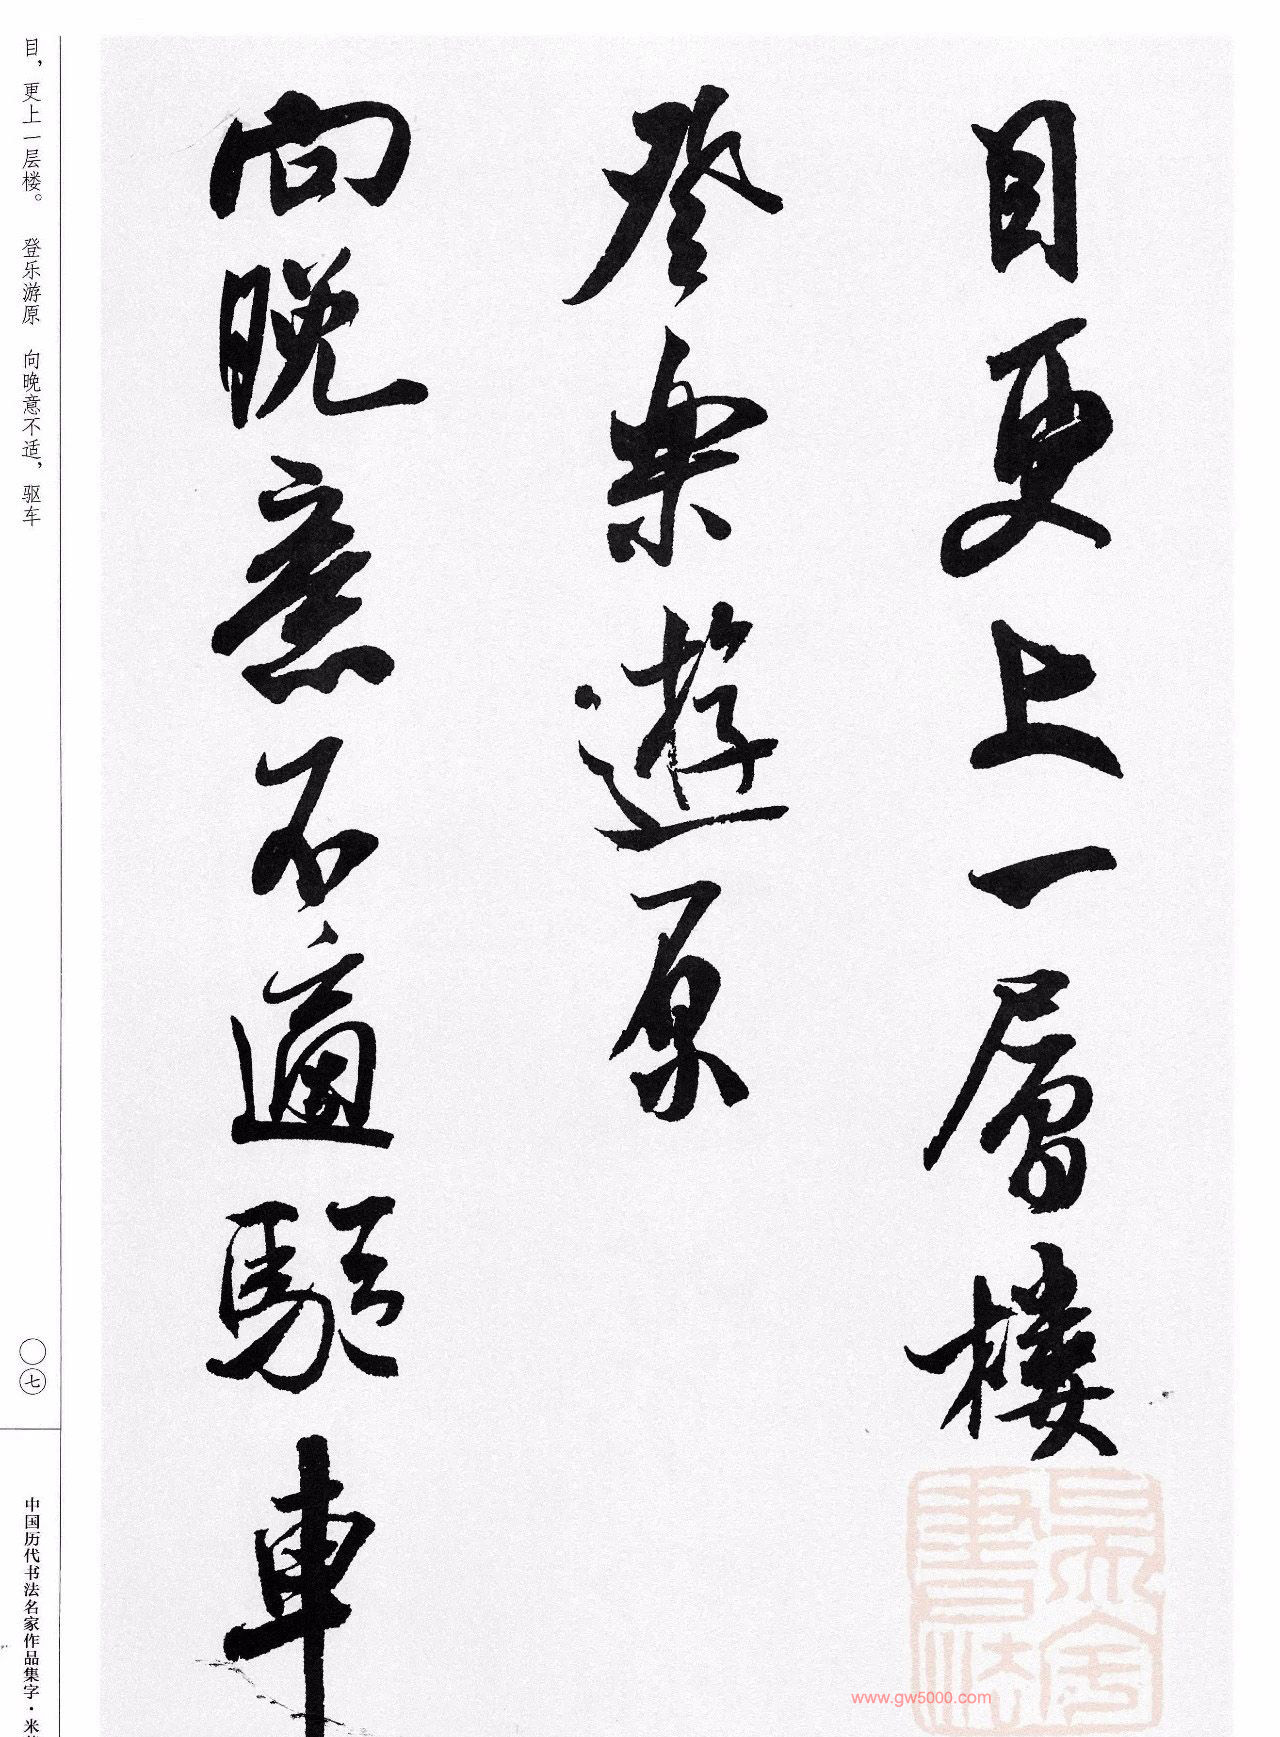 目更上一層樓
登樂遊原
向晚意不適驅車
目，更上一层楼。 登乐游原 向晚意不适，驱车
〇七
中国历代书法名家作品集字·米
www.gw5000.com